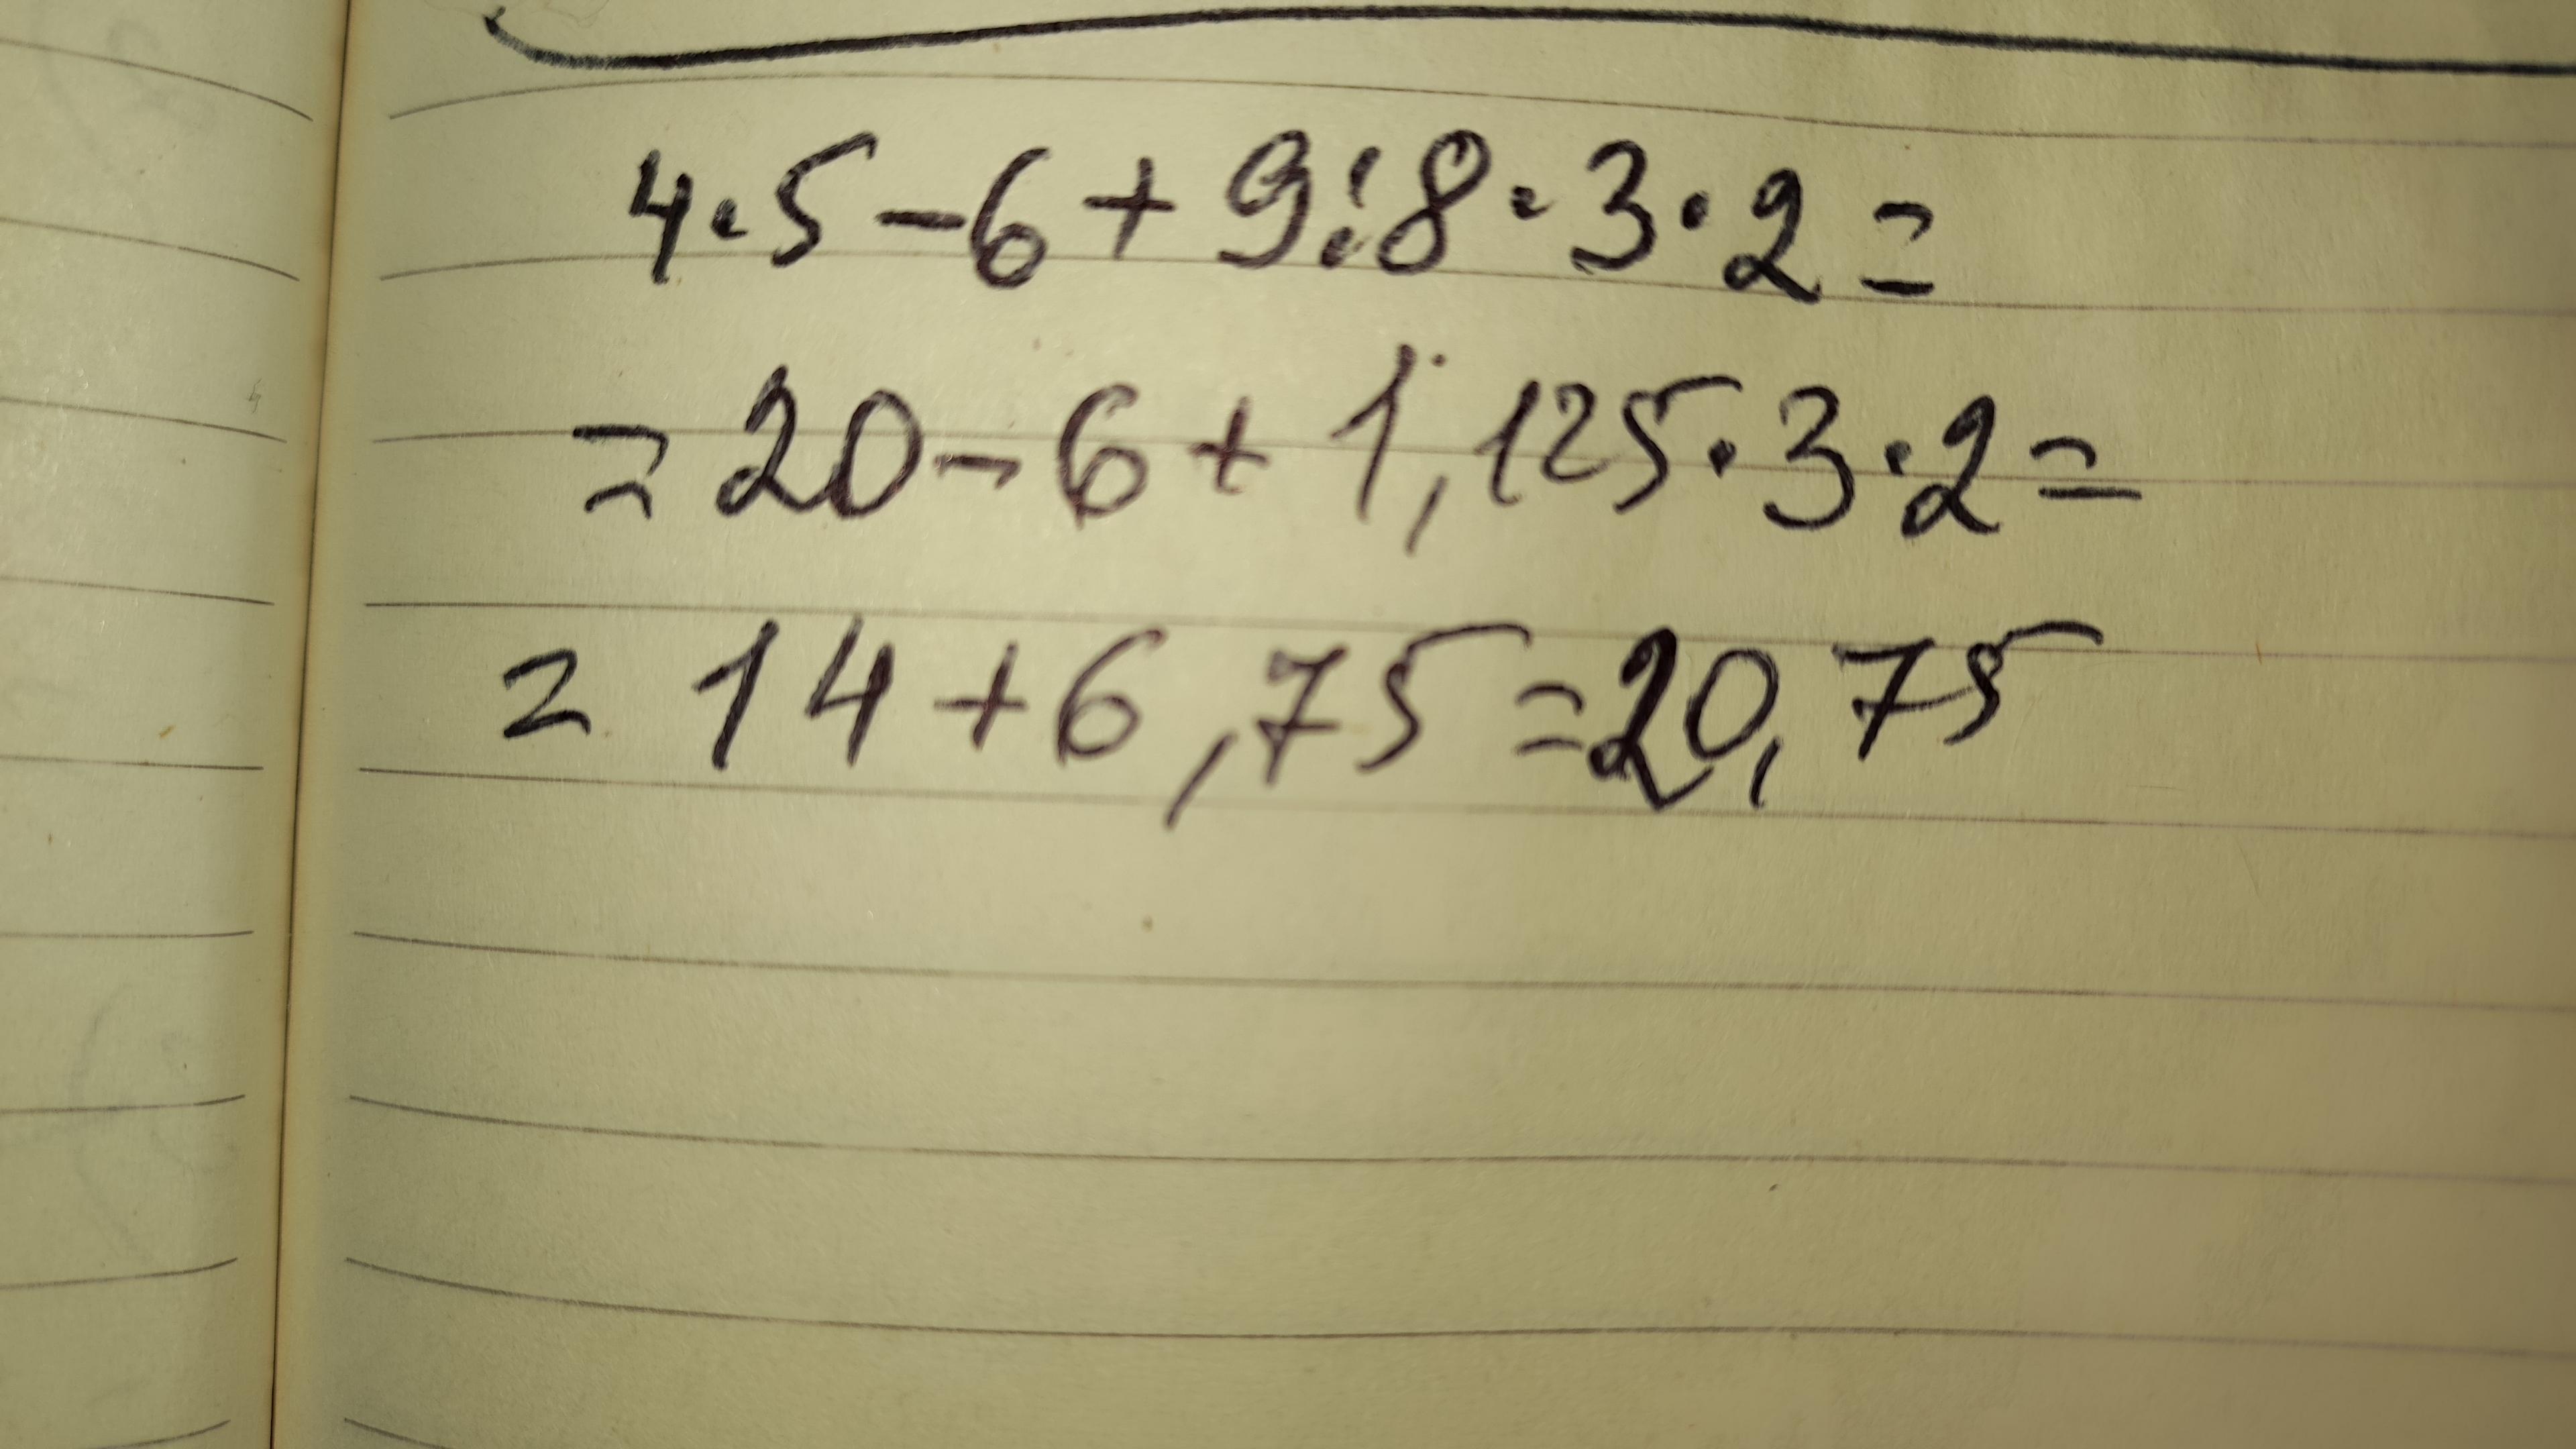 4·5-6+9:8·3·2=
=20-6+1,125·3·2=
=14+6,75=20,75